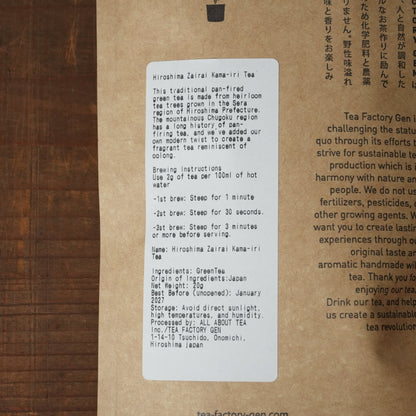 Hiroshima Zairai Kama-iri Tea
This traditional pan-fired
green tea is made from heirloom
tea trees grown in the Sera
region of Hiroshima Prefecture.
The mountainous Chugoku region
has a long history of pan-
firing tea, and we've added our
own modern twist to create a
fragrant tea reminiscent of
oolong.
Brewing Instructions
Use 2g of tea per 100ml of hot
water
-1st brew: Steep for 1 minute
-2st brew: Steep for 30 seconds.
-3st brew: Steep for 3 minutes
or more before serving.
Name: Hiroshima Zairai Kama-iri
Tea
Ingredients: GreenTea
Origin of Ingredients:Japan
Net Weight: 20g
Best Before (unopened): January
2027
Storage: Avoid direct sunlight,
high temperatures, and humidity.
Processed by: ALL ABOUT TEA
Inc./TEA FACTORY GEN
1-14-10 Tsuchido, Onomichi,
Hiroshima Japan
、人と自然が調和した
ルなお茶作りに励んで
ため化学肥料と農薬
りません。野性味溢れ
味と香りをお楽しみ
Tea Factory Gen i
challenging the statu
quo through its efforts t
strive for sustainable te
production which is i
harmony with nature an
people. We do not us
fertilizers, pesticides, o
other growing agents. W
want you to create lasting
experiences through ou
original taste an
aromatic handmade wil
tea. Thank you fo
enjoying our tea.
Drink our tea, and help u
create a sustainabl
tea revolution
tea-factory-gen.com